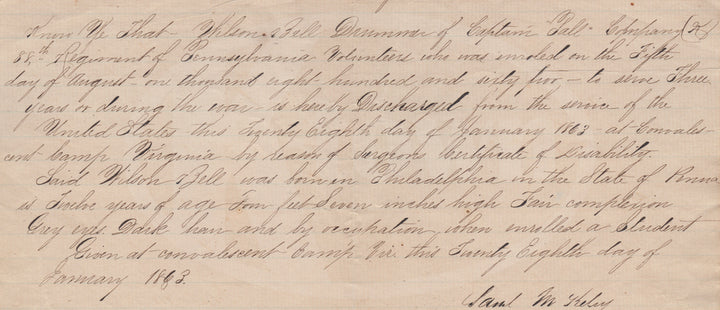 Know Ye That - Wilson Bell Drummer of Captain Fall Company (K)
88th Regiment of Pennsylvania Volunteers who was enroled on the Fifth
day of August - one thousand eight hundred and sixty two - to serve Three
years or during the war - is hereby Discharged from the service of the
United States this Twenty Eighth day of January 1863 - at Convales-
cent Camp Virginia - by reason of Surgeons Certificate of Disability.
Said Wilson Bell was born in Philadelphia in the State of Penna
is Twelve years of age four feet Seven inches high Fair complexion
Grey eyes Dark hair and by occupation, when enrolled a Student
Given at convalescent Camp this Twenty Eighth day of
January 1863.
Saml M